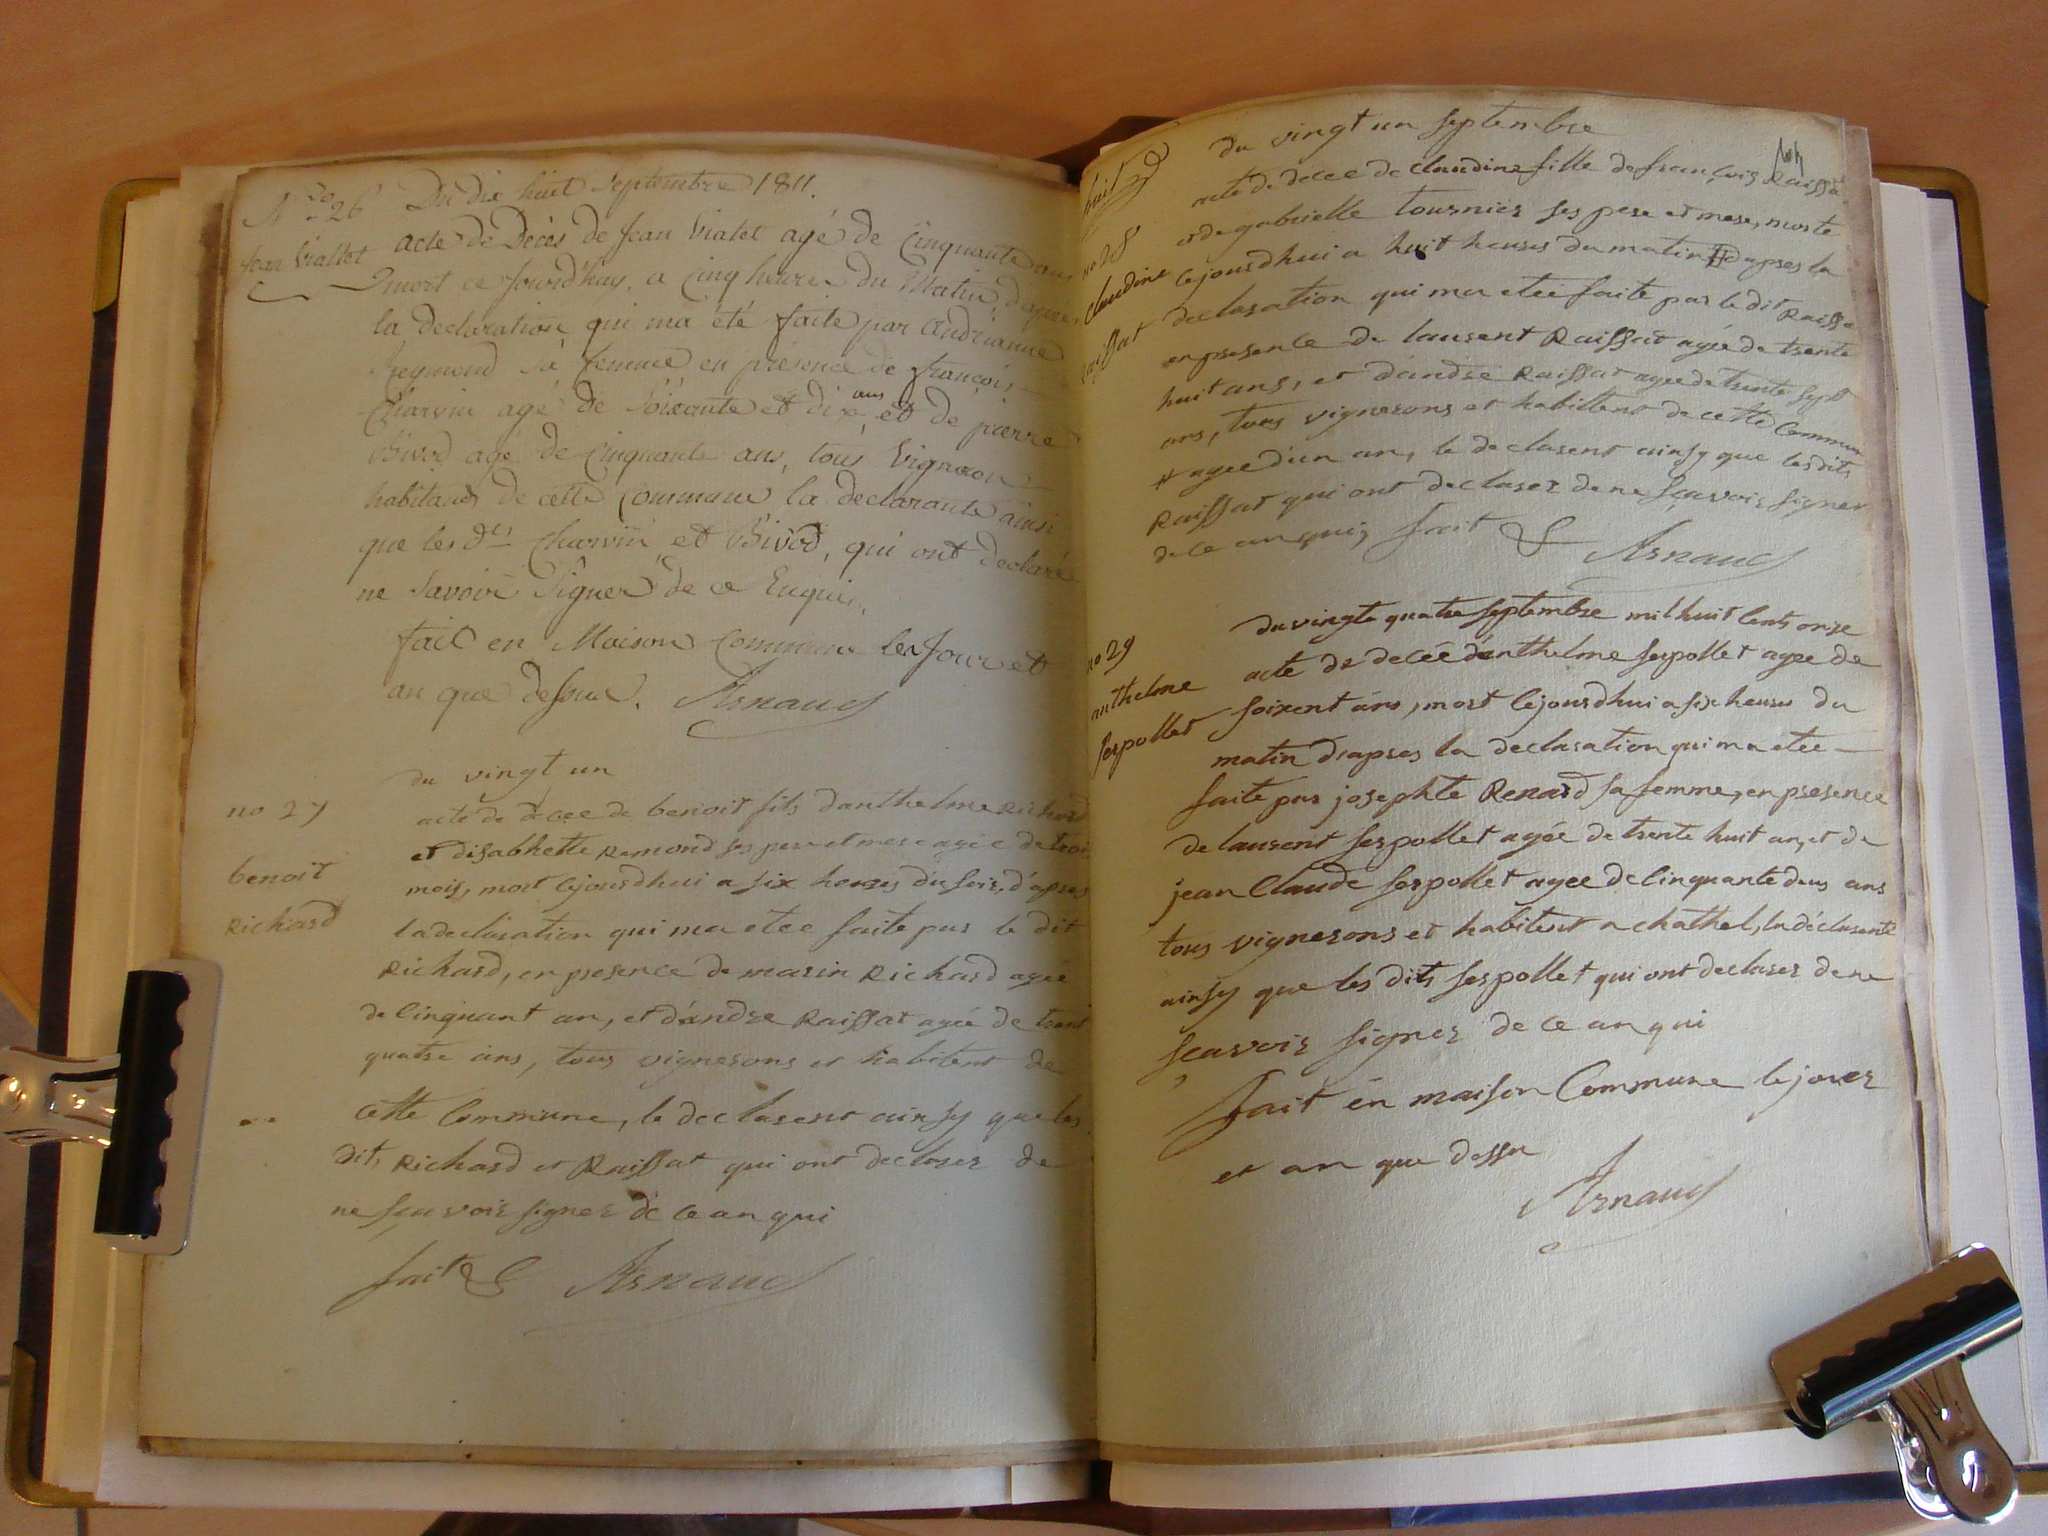 N.ro 26 Du dix huit Septembre 1811.
Jean Viallet
acte de Décès de Jean Vialet agé de Cinquante ans
mort ce Jourd'huy, a Cinq heures du Matin, d'après
la declaration qui ma été faite par Andrianne
Reymond sa femme en présence de françois
Charvin agé de Soixante et dix ans, et de pierre
Bivod agé de Cinquante ans, tous Vigneron
habitans de cette Commune la declarante ainsi
que les dts Charvin et Bivod, qui ont declaré
ne Savoir Signer de ce Enquis.
fait en Maison Commune les Jour et
an que dessus. Arnaud
du vingt un
no 27
benoit
Richard
acte de décee de benoit fils danthelme Richard
et disabhette Remond ses pere et mere agée de trois
mois, mort cejourdhui a six heures du soir, d'apres
la declaration qui ma etee faite par le dit
Richard, en presence de marin Richard agée
de Cinquant an, et d'andre Raissat agée de trent
quatre ans, tous vignerons et habitent de
cette Commune, le declarent ainsy que les
dits Richard et Raissat qui ont declarer de
ne sçavoir signer de ce an qui
fait & Arnaud
huit
du vingt un septembre
no 28
Claudine
Raissat
acte de decee de Claudine fille de françois Raissat
et de gabrielle tournier ses pere et mere, morte
cejourdhui a huit heures du matin # d'apres la
declaration qui ma etee faite par le dit Raissat
en presence de laurent Raissat agée de trente
huit ans, et d'andre Raissat agee de trente sept
ans, tous vignerons et habittent de cette Commune
# agee d'un an, le declarent ainsy que lesdits
Raissat qui ont declarer de ne sçavoir signer
de ce an qui, fait & Arnaud
du vingte quatre septembre mil huit Cents onze
no 29
anthelme
Serpollet
acte de decée d'anthelme Serpollet agee de
soixent ans, mort Cejourdhui a six heures du
matin d'apres la declaration qui ma etee
faite par josephte Renard sa femme, en presence
de laurent Serpollet agée de trente huit an, et de
jean Claude Serpollet agee de Cinquante deus ans
tous vignerons et habitent a chathel, la déclarente
ainsy que les dits Serpollet qui ont declarer de ne
sçavoir signer de ce an qui
fait én maison Commune le jouer
et an que dessu
Arnaud